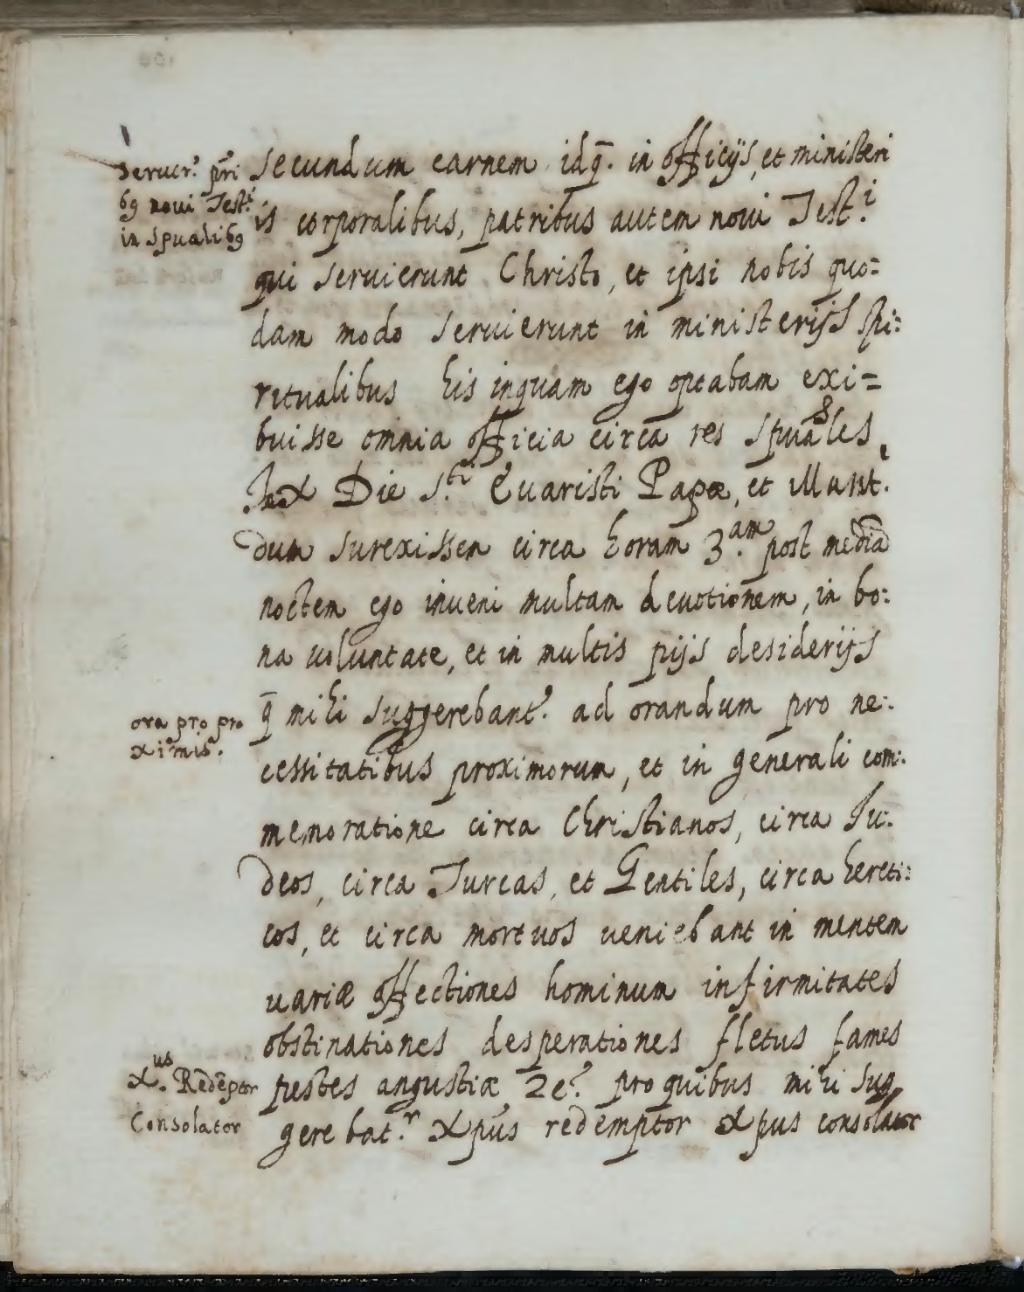 Seruir.t pri
bꝯ noui Test.i
in Spualibꝯ
secundum carnem idq̃. in officijs, et ministeri
is corporalibus, patribus autem noui Test.i
qui seruierunt Christo, et ipsi nobis quo=
dam modo seruierunt in ministerijs spi:
ritualibus his inquam ego optabam exi=
buisse omnia officia circa res spuales
Die S.ti Euaristi Papæ, et
dum surexissem circa horam 3.am post mediã
noctem ego inueni multam deuotionem, in bo:
na uoluntate, et in multis pijs desiderijs
ora pro pro
ximis.
q̃ mihi suggerebant.r ad orandum pro ne:
cessitatibus proximorum, et in generali com:
memoratione circa Christianos, circa Iu:
deos, circa Turcas, et Gentiles, circa hereti:
cos, et circa mortuos ueniebant in mentem
uariæ affectiones hominum infirmitates
obstinationes desperationes fletus fames
X.us Redẽptor
Consolator
pestes angustiæ 2c.a pro quibus mihi sug
gerebat.r Xpũs redemptor Xpus consolator